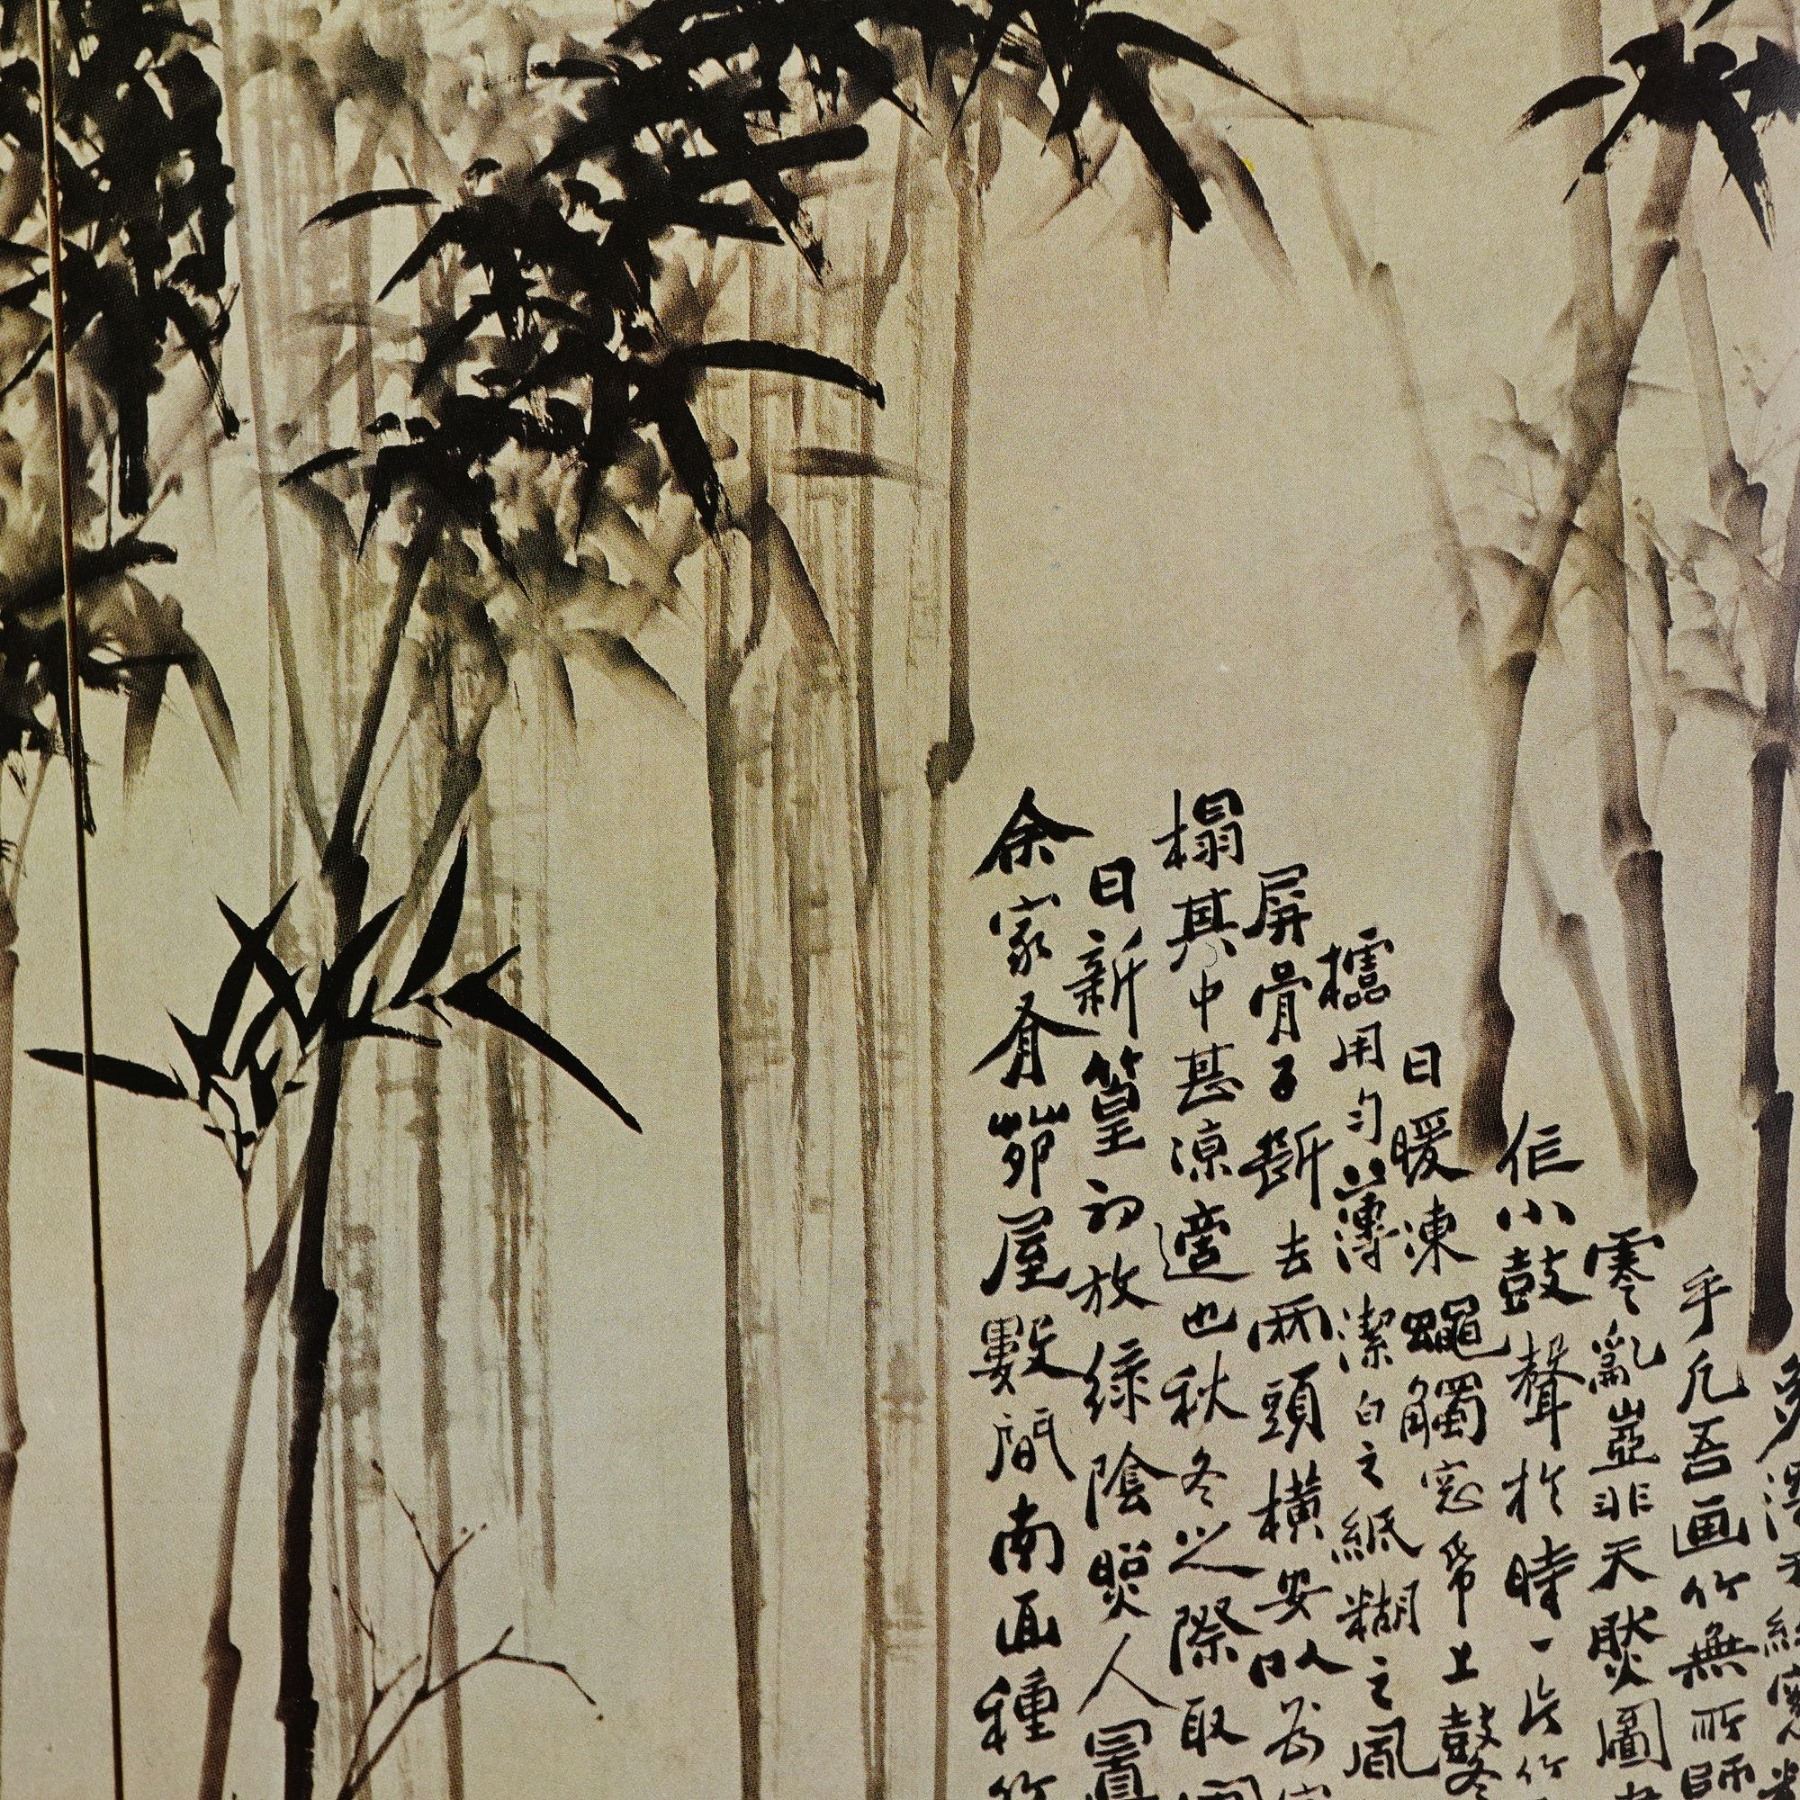 余家有茆屋數間南面種竹
日新篁初放綠陰照人置
榻其中甚涼適也秋冬之際取圍
屏骨子斷去兩頭橫安以為窗
櫺用勻薄潔白之紙糊之風
日暖凍蠅觸窓帋上鼕
作小鼓聲於時一片竹
零亂豈非天然圖
乎凡吾画竹無所師
多得于紙窓粉